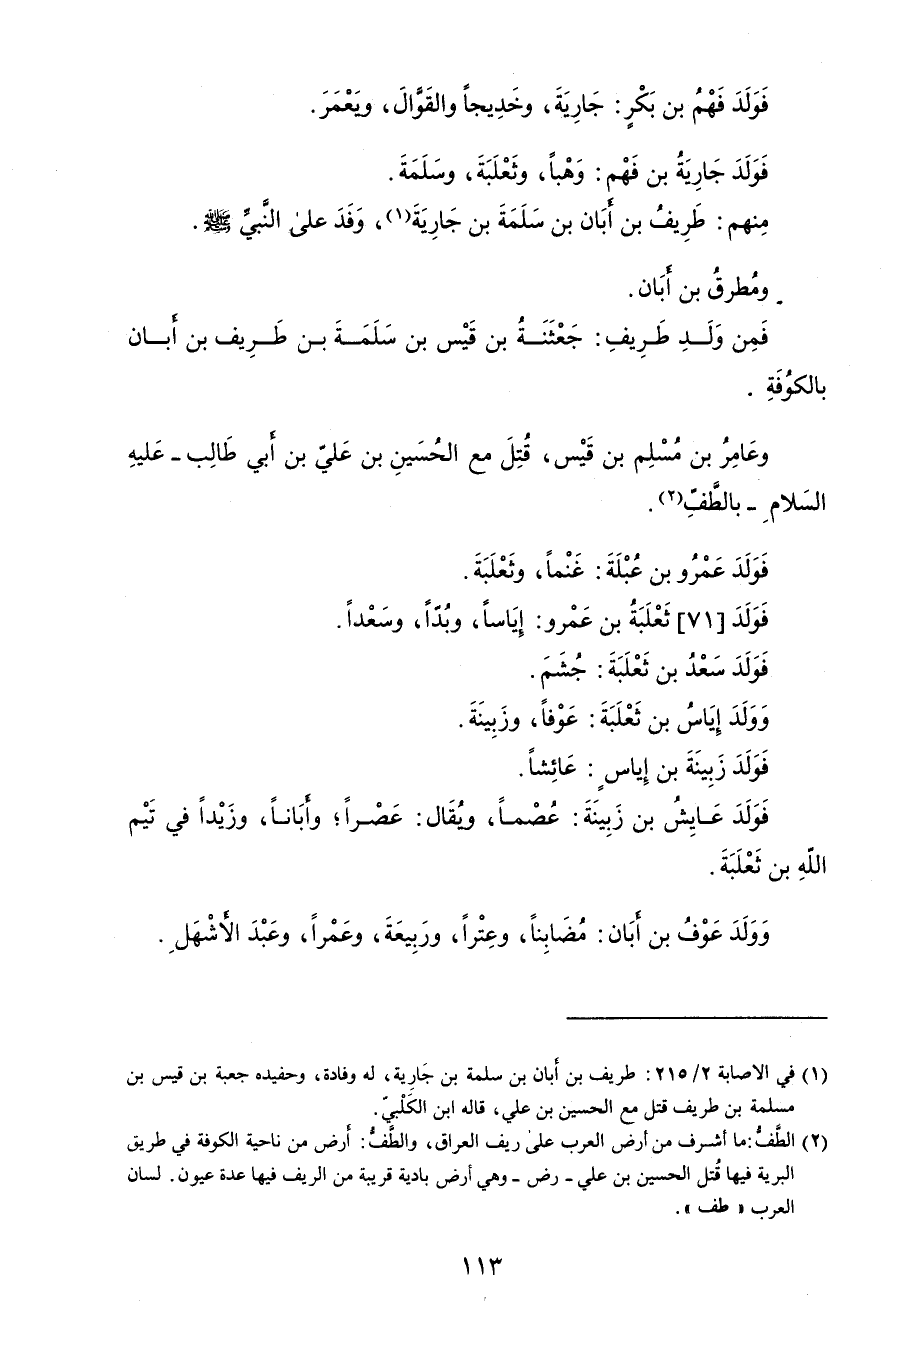 فَوَلَدَ فَهْمُ بن بَكْرٍ: جَارِيَةَ، وخَدِيجاً والقَوَّالَ، ويَعْمَرَ.
فَوَلَدَ جَارِيَةُ بن فَهْمٍ: وَهْباً، وثَعْلَبَةَ، وسَلَمَةَ.
مِنهم: طَرِيفُ بن أَبَان بن سَلَمَةَ بن جَارِيَةَ(١)، وَفَدَ على النَّبيِّ ﷺ.
ومُطرقُ بن أَبَان.
فَمِن وَلَدِ طَرِيفِ: جَعْثَنَةُ بن قَيْس بن سَلَمَةَ بن طَرِيف بن أَبان
بالكُوفَةِ.
وعَامِرُ بن مُسْلِم بن قَيْس، قُتِلَ مع الحُسَينِ بن عَليّ بن أَبي طَالِب ـ عَليهِ
السَلامِ ـ بالطَّفِّ(٢).
فَوَلَدَ عَمْرُو بن عُبْلَةَ: غَنْماً، وثَعْلَبَةَ.
فَوَلَدَ [٧١] ثَعْلَبَةُ بن عَمْرو: إِيَاساً، وبُدّاً، وسَعْداً.
فَوَلَدَ سَعْدُ بن ثَعْلَبَةَ: جُشَمَ.
وَوَلَدَ إِيَاسُ بن ثَعْلَبَةَ: عَوْفاً، وزَبِينَةَ.
فَوَلَدَ زَبِينَةَ بن إِياسٍ: عَائِشاً.
فَوَلَدَ عَايِشُ بن زَبِينَةَ: عُصْماً، ويُقَال: عَصْراً؛ وأَبَاناً، وزَيْداً في تَيْم
اللّهِ بن ثَعْلَبَةَ.
وَوَلَدَ عَوْفُ بن أَبَان: مُضَابِناً، وعِتْراً، ورَبِيعَةَ، وعَمْراً، وعَبْدَ الأَشْهَلِ.
(١) في الاصابة ٢/ ٢١٥: طريف بن أَبان بن سلمة بن جَارِية، له وفادة، وحفيده جعبة بن قيس بن
مسلمة بن طريف قتل مع الحسين بن علي، قاله ابن الكَلْبيّ.
(٢) الطَّفُّ: ما أشرف من أرض العرب على ريف العراق، والطَّفُّ: أَرض من ناحية الكوفة في طريق
البرية فيها قُتل الحسين بن علي ـ رض ـ وهي أرض بادية قريبة من الريف فيها عدة عيون. لسان
العرب « طف ».
١١٣